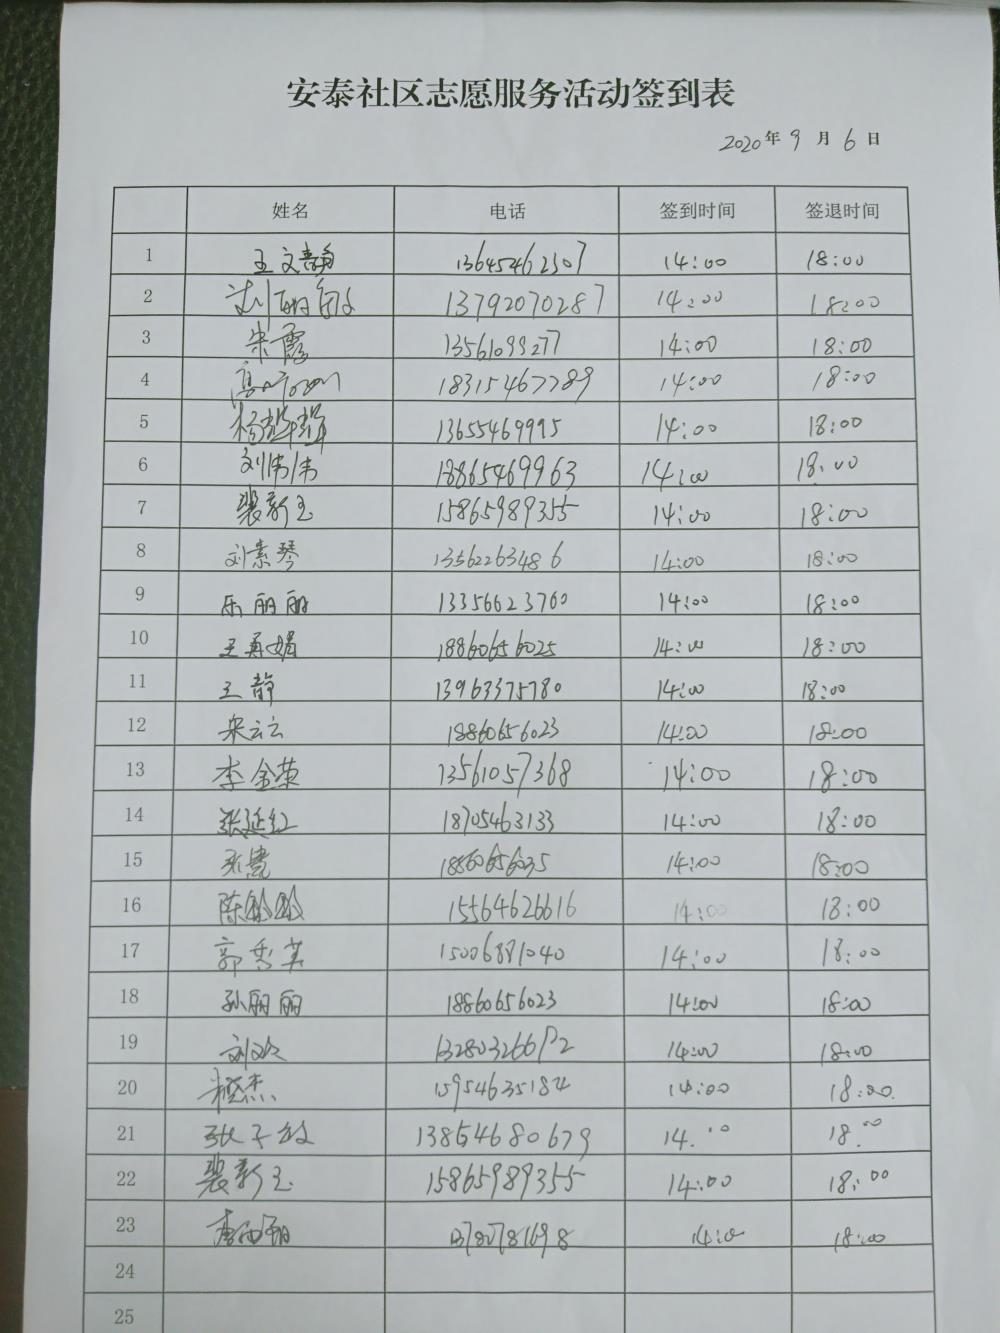 安泰社区志愿服务活动签到表
2020年9月6日
姓名 电话 签到时间 签退时间
1 王文静 13645462307 14:00 18:00
2 刘丽敏 13792070287 14:00 18:00
3 朱霞 13561099277 14:00 18:00
4 高 18315467789 14:00 18:00
5 杨 13655469995 14:00 18:00
6 刘伟伟 18865469963 14:00 18:00
7 裴新玉 15865989355 14:00 18:00
8 刘素琴 13562263486 14:00 18:00
9 乐丽丽 13356623760 14:00 18:00
10 王再娟 18860656025 14:00 18:00
11 王静 13963375780 14:00 18:00
12 宋云云 18860656023 14:00 18:00
13 李金荣 13561057368 14:00 18:00
14 张延红 18705463133 14:00 18:00
15 18860656035 14:00 18:00
16 陈 15564626616 14:00 18:00
17 郭秀英 15006881040 14:00 18:00
18 孙丽丽 18860656023 14:00 18:00
19 刘欢 14:00 18:00
20 杰 15954635184 14:00 18:00
21 张子敏 13854680679 14:00 18:00
22 裴新玉 15865989355 14:00 18:00
23 13780781698 14:00 18:00
24
25